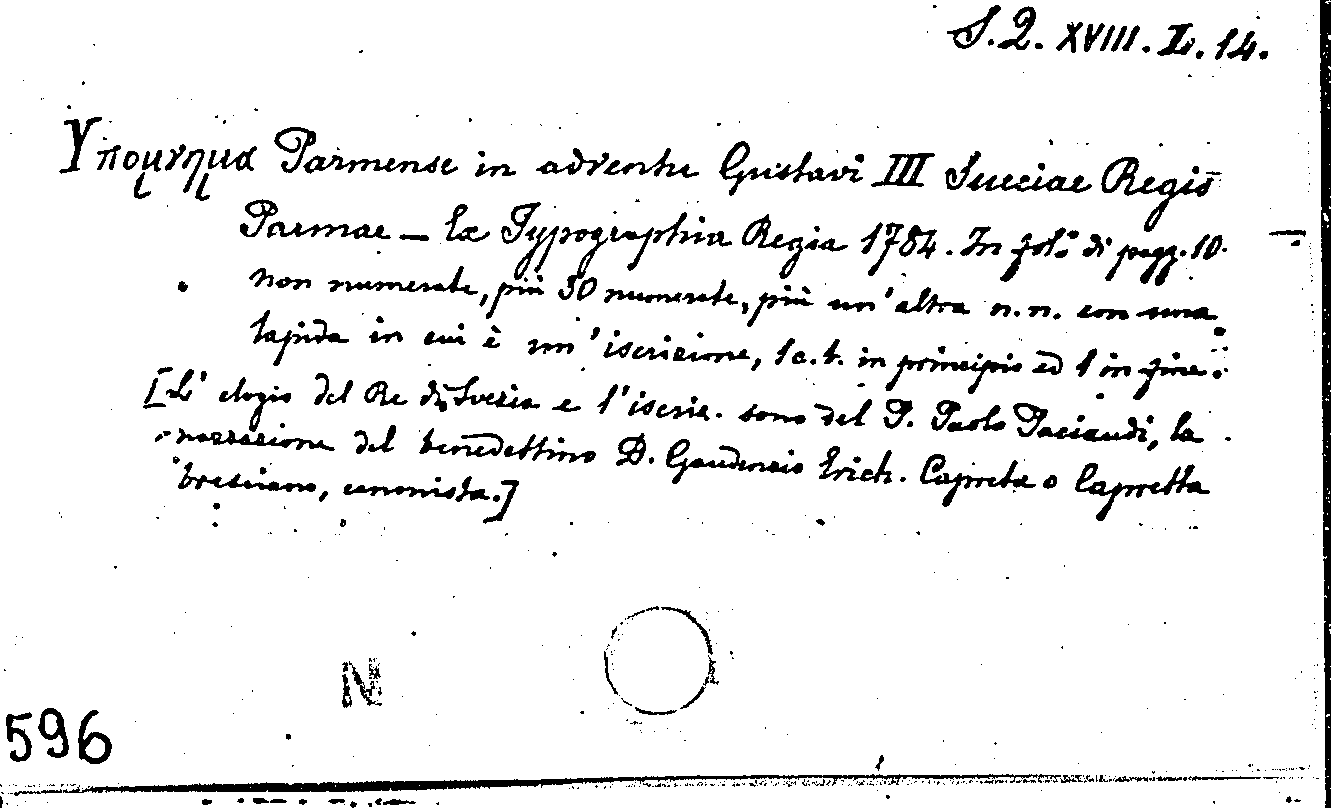 S.2. XVIII. II. 14.
Υπομνημα Parmense in adventu Gustavi III Sueciae Regis
Parmae — Ex Typographia Regia 1784. In fol.º di pagg. 10.
non numerate, più 50 numerate, più un' altra n. n. con una
lapida in cui è un' iscrizione, 1 c. b. in principio ed 1 in fine.
[L' elogio del Re di Svezia e l' iscriz. sono del P. Paolo Paciaudi, la
narrazione del benedettino D. Gaudenzio Erich. Capreta o Capretta
bresciano, canonista.]
N
596